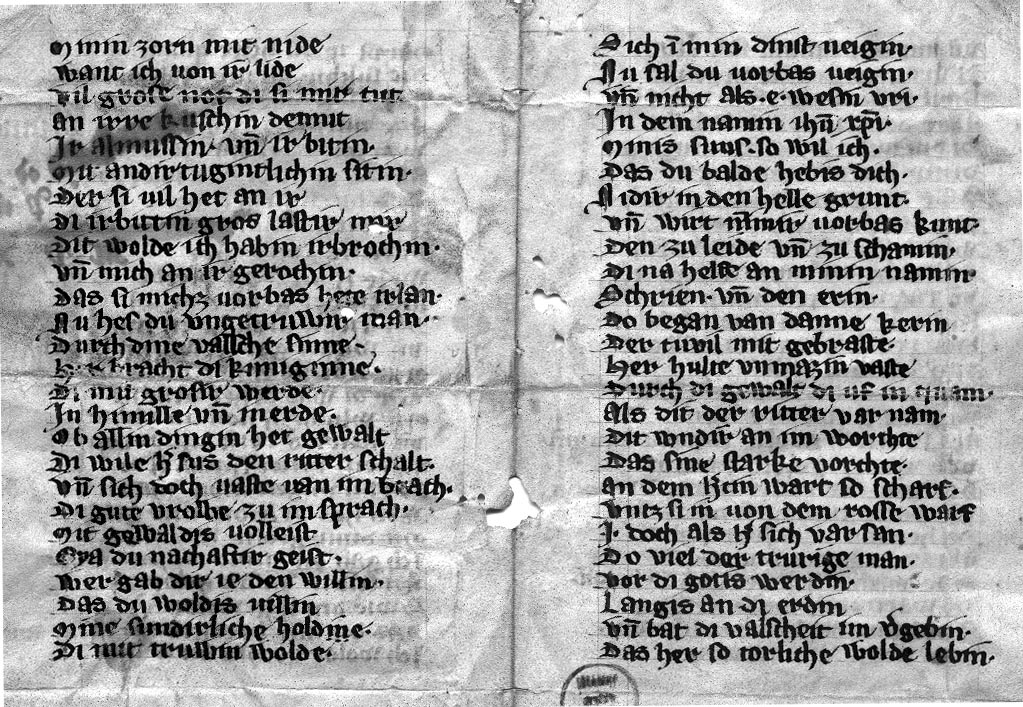 Minin zorn mit nide
want ich von ir lide
Vil grose not di si mir tut
an irre kuschin demut
Ir almussin· vn̄ ir bitin·
Mit andir tugintlichin sitin·
Der si vil het an ir
di irbutin gros lastir mir
Dit wolde ich habin irbrochin·
vn̄ mich an ir gerochin·
Das si mich vorbas hete irlan·
Nu hes du vngetruwir man·
Durch dine valsche sinne·
Her bracht di kuniginne·
Di mit grosir werde·
In himille vn̄ in erde·
Ob allin dingin het gewalt
Di wile sus den ritter schalt·
vn̄ sich doch vaste van im brach·
Di gute vrolbe zu im sprach·
Mit gewaldis volleist
Eya du nachaftir geist·
wer gab dir ie den willin·
Das du woldis villin
Mine sundirliche holdinne·
Di mit truwin wolde·
Dich ī min dinst neigin·
Nu sal du vorbas neigin·
vn̄ nicht als·e·wesin vri·
In dem namin ihū xp̄i·
Minis suns·so wil ich·
Das du balde hebis dich·
Nidir in den helle grunt·
vn̄ wirt nimir vorbas kunt·
Den zu leide vn̄ zu schamin·
Di na helfe an minin namin
Schrien· vn̄ den erin·
Do began van danne kerin
Der tuvil mit gebraste·
Her hulte vnmazin vaste
Durch di gewalt di uf in quam·
Als dit der ritter var nam·
Dit wndir an im worchte
Das sine starke vorchte·
an dem wart so scharf·
vntz si in von dem rosse warf
I doch als sich var san·
Do viel der trurige man·
vor di gotis werdin·
Langis an di erdin
vn̄ bat di valscheit im v̓gebin·
Das her so torliche wolde lebin·